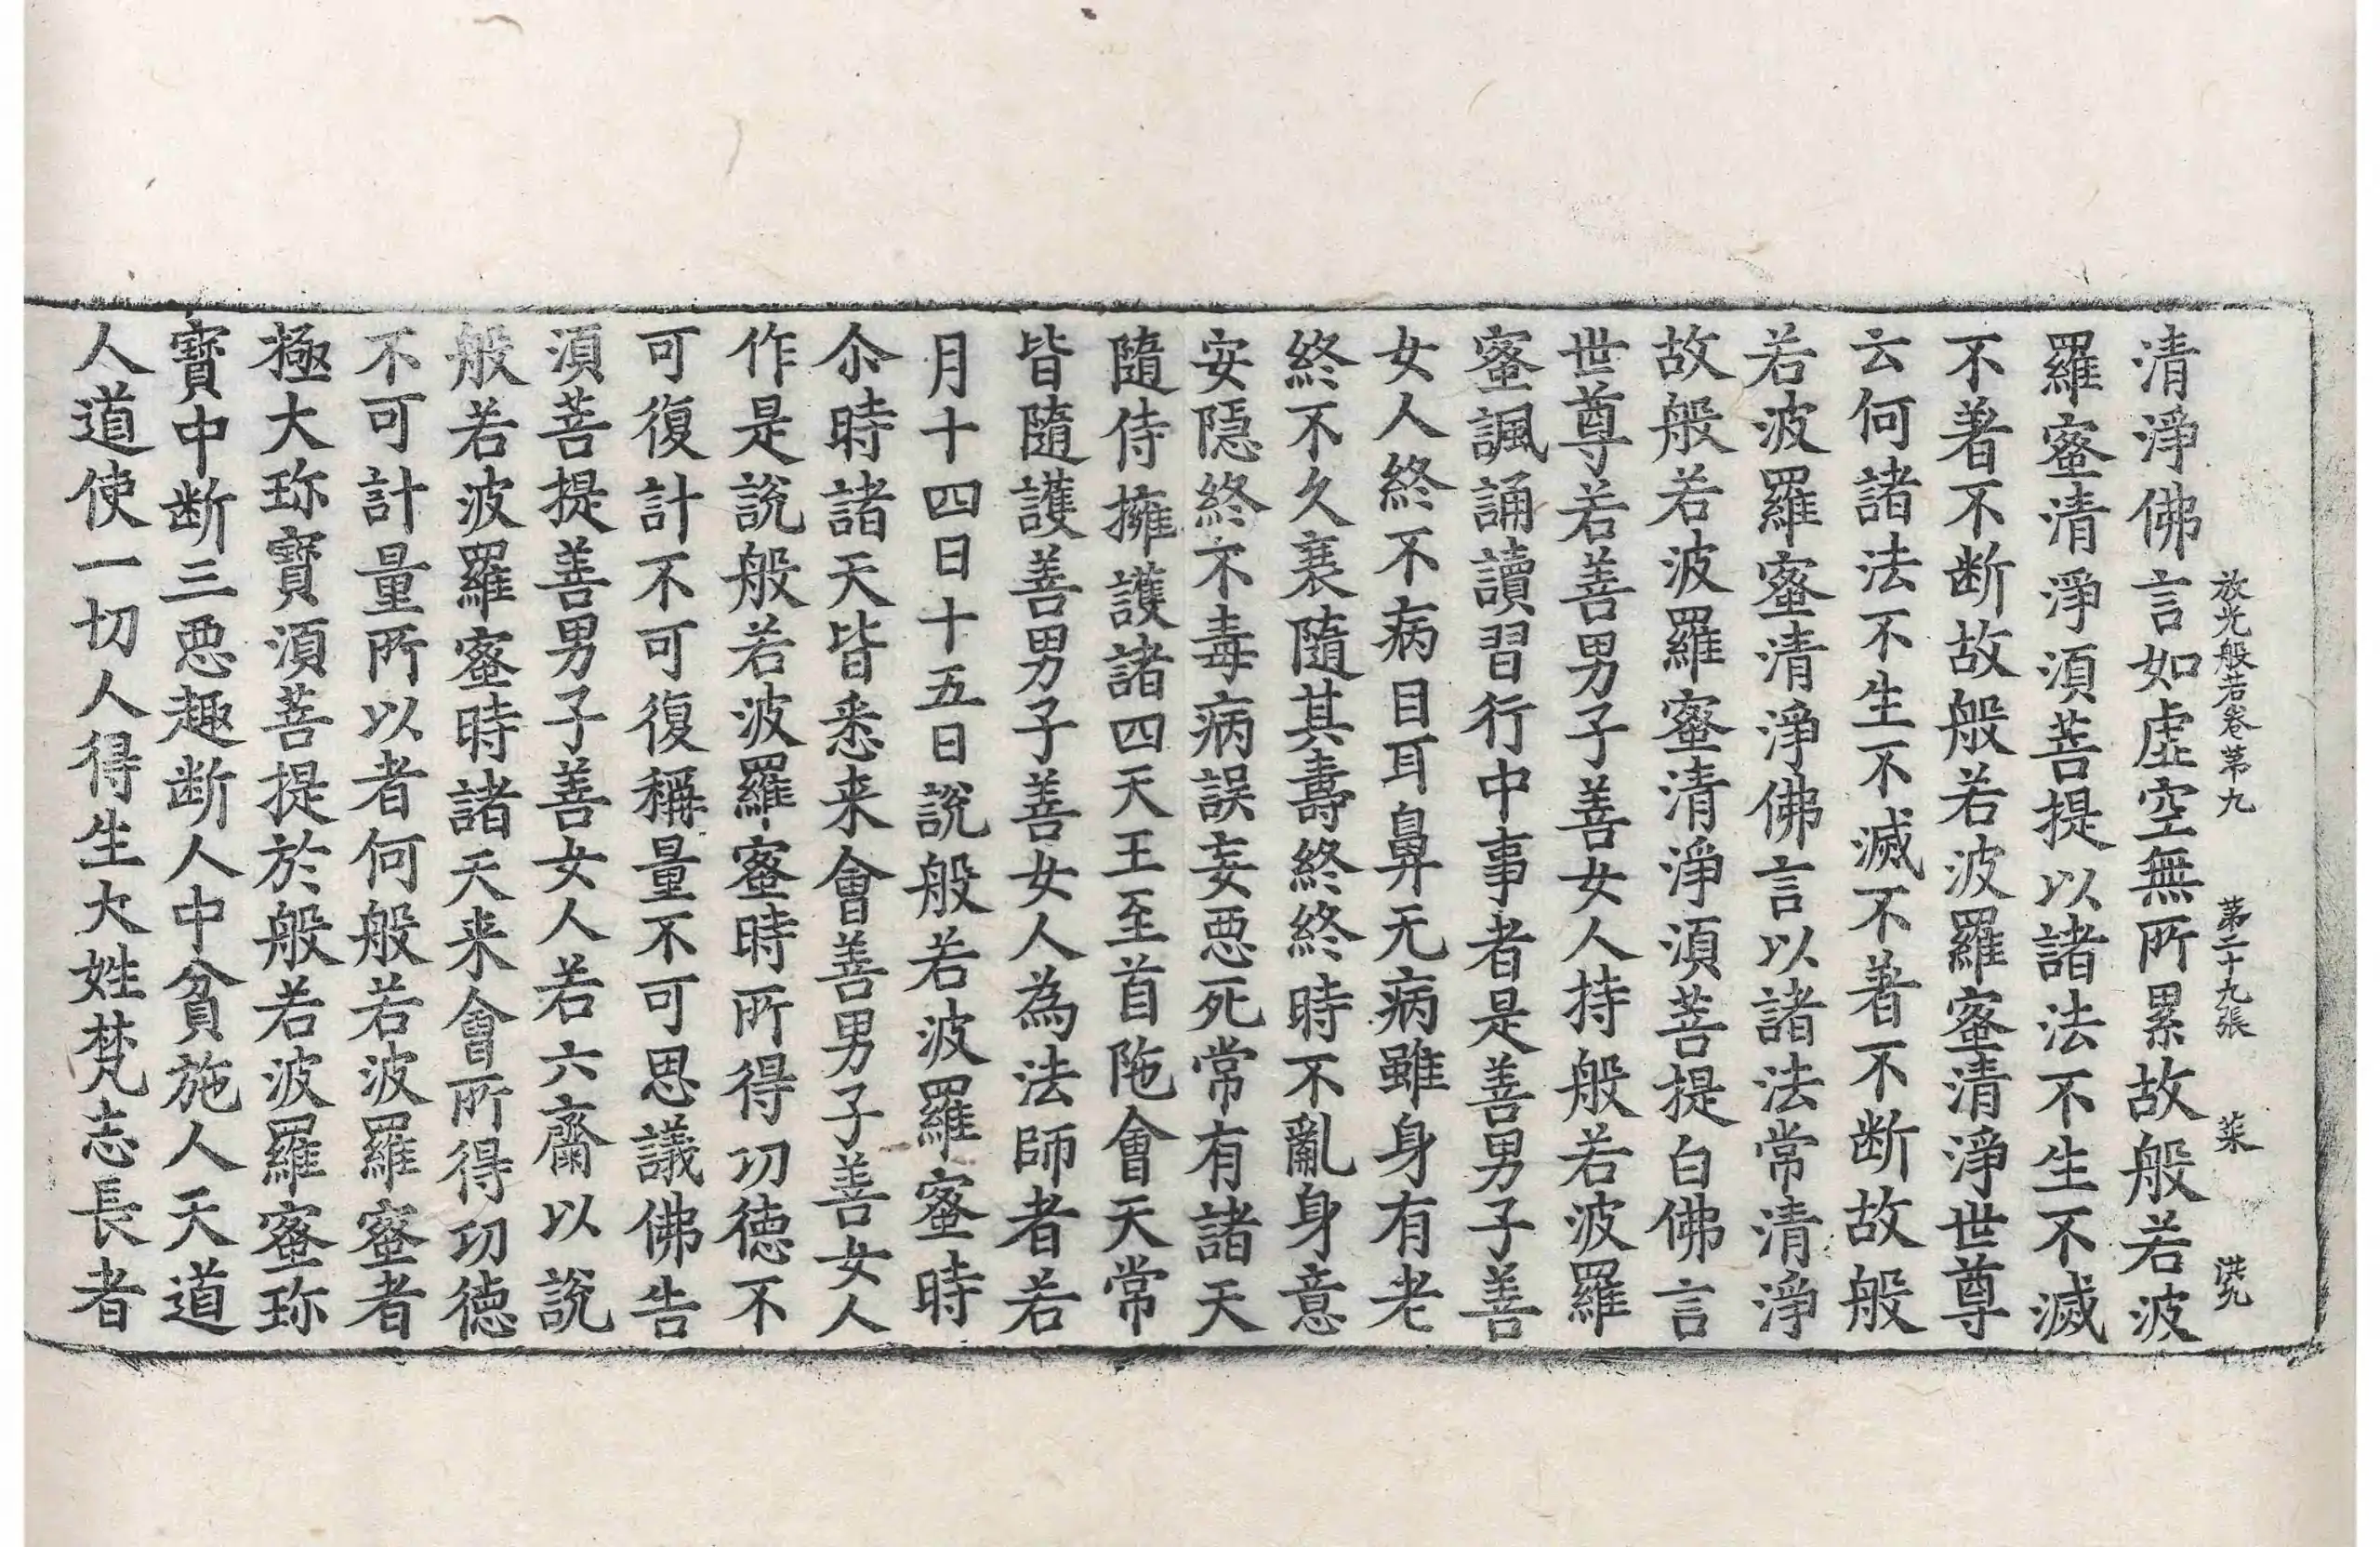 放光般若卷第九 第二十九張 菜 洪究
清淨佛言如虛空無所累故般若波
羅蜜清淨須菩提以諸法不生不滅
不著不断故般若波羅蜜清淨世尊
云何諸法不生不滅不著不断故般
若波羅蜜清淨佛言以諸法常清淨
故般若波羅蜜清淨須菩提白佛言
世尊若善男子善女人持般若波羅
蜜諷誦讀習行中事者是善男子善
女人終不病目耳鼻无病雖身有老
終不久衰隨其壽終終時不亂身意
安隱終不毒病誤妄惡死常有諸天
隨侍擁護諸四天王至首陁會天常
皆隨護善男子善女人為法師者若
月十四日十五日說般若波羅蜜時
尒時諸天皆悉来會善男子善女人
作是說般若波羅蜜時所得功德不
可復計不可復稱量不可思議佛告
須菩提善男子善女人若六齋以說
般若波羅蜜時諸天来會所得功德
不可計量所以者何般若波羅蜜者
極大珎寶須菩提於般若波羅蜜珎
寶中断三惡趣断人中貧施人天道
人道使一切人得生大姓梵志長者